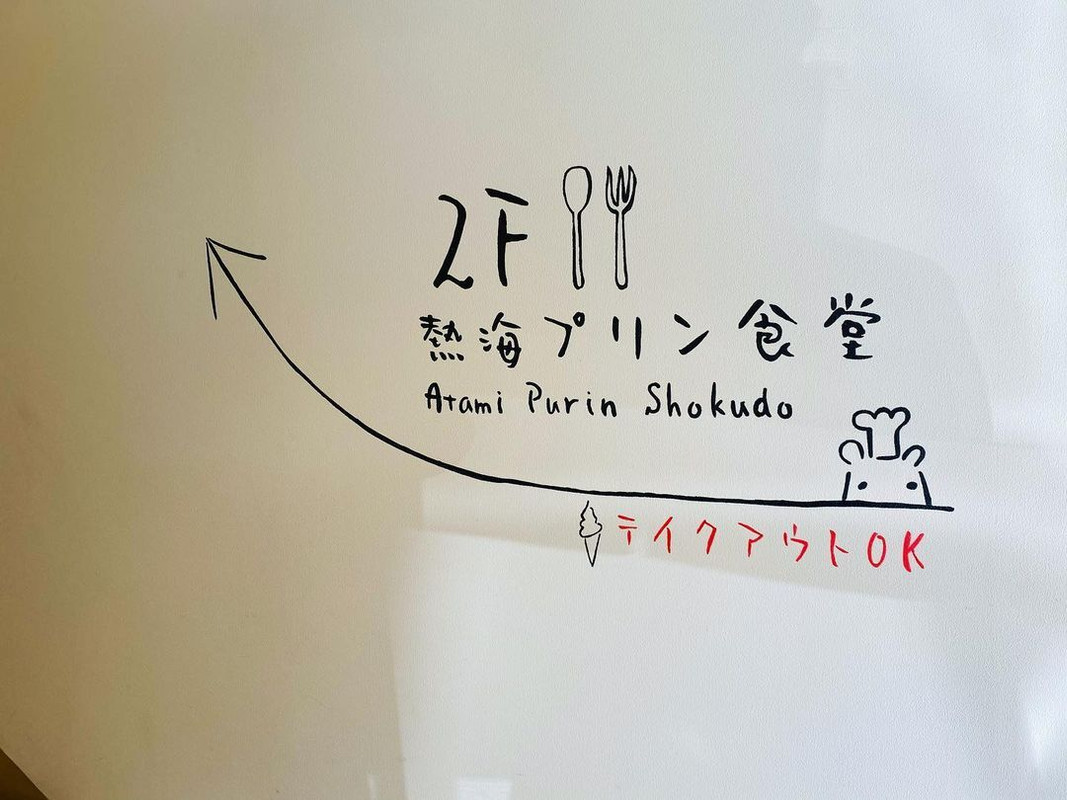 2F
熱海プリン食堂
Atami Purin Shokudo
テイクアウトOK